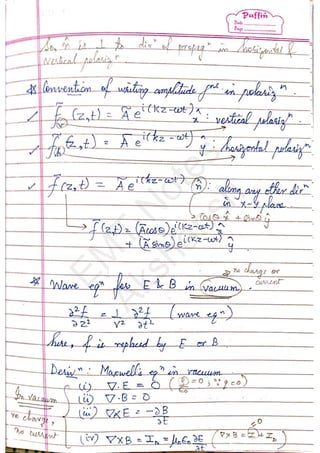 Puffin
Date
Page
So, n̂ is ⊥ to dirⁿ of propagⁿ in horizontal &
vertical polarizⁿ.
* Convention of writing amplitude fⁿˢ. in polarizⁿ.
✓ f̃ᵥ(z,t) = Ã e^i(kz-ωt) x̂ : vertical polarizⁿ.
✓ f̃ₕ(z,t) = Ã e^i(kz-ωt) ŷ : horizontal polarizⁿ.
✓ f̃(z,t) = Ã e^i(kz-ωt) n̂ : along any other dirⁿ
in x-y plane.
cosθ x̂ + sinθ ŷ
→ f̃(z,t) = (Ã cosθ) e^i(kz-ωt) x̂
+ (Ã sinθ) e^i(kz-ωt) ŷ
→ no charge or
current
* Wave eqⁿ for E & B in vacuum.
∂²f/∂z² = 1/v² ∂²f/∂t² (wave eqⁿ)
here, f is replaced by E or B
Derivⁿ: Maxwell's eqⁿ in vacuum
In vacuum
no charge,
no current
(i) ∇·E = 0 (ρ/ε₀ = 0, ∵ ρ=0)
(ii) ∇·B = 0
(iii) ∇×E = -∂B/∂t
(iv) ∇×B = I_D = μ₀ε₀ ∂E/∂t (∇×B = I + I_D)
=0
EMT Notes